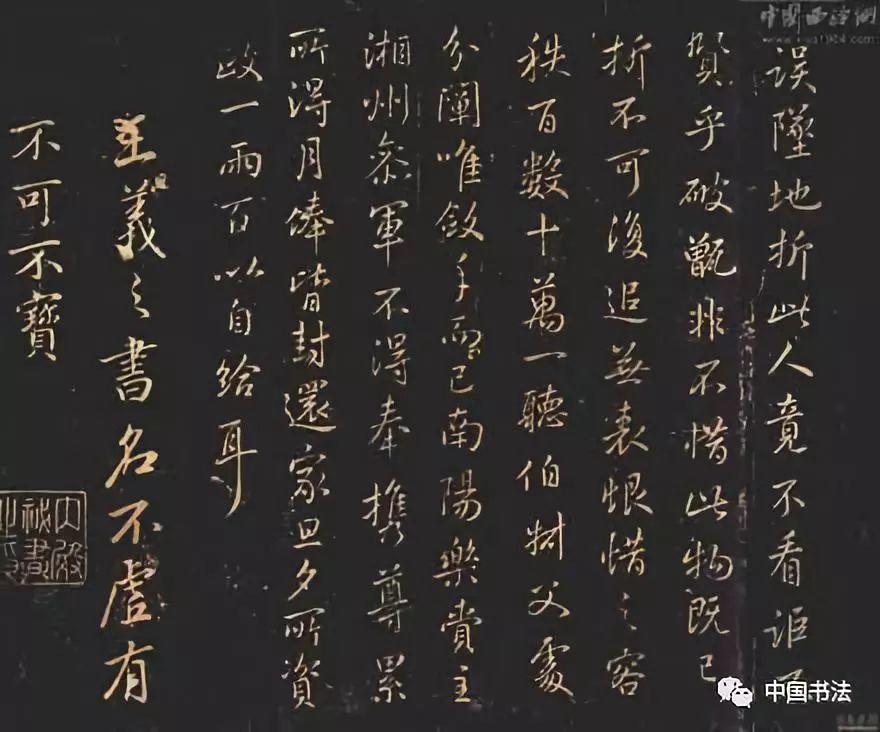 误墜地折此人竟不看詎不
賢乎破甑非不惜此物既已
折不可復追無表恨惜之容
秩百數十萬一聽伯樹父處
分闈唯斂手而已南陽樂賞主
湘州叅軍不得奉攜尊累
所得月俸皆封還家旦夕所資
政一兩百以自給耳
王羲之書名不虛有
不可不寶
内殿
祕書
中國书法